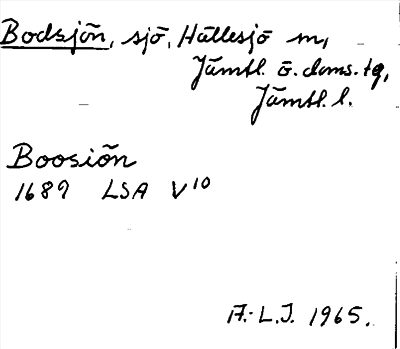 Bodsjön, sjö, Hällesjö sn,
Jämtl. ö. doms. tg,
Jämtl. l.
Boosiön
1689 LSA V¹⁰
A.-L.J. 1965.